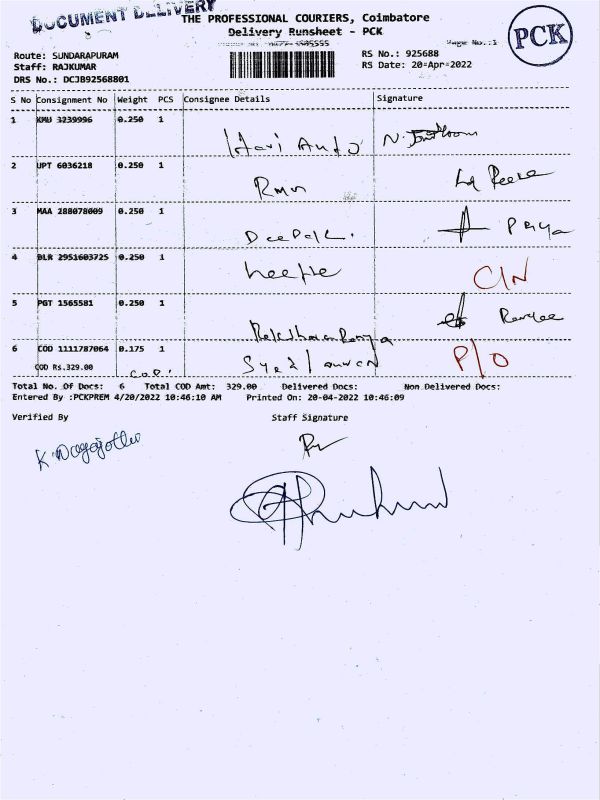 DOCUMENT DELIVERY
THE PROFESSIONAL COURIERS, Coimbatore
Delivery Runsheet - PCK
PCK
Page No.:1
Route: SUNDARAPURAM
RS No.: 925688
Staff: RAJKUMAR
RS Date: 20-Apr-2022
DRS No.: DCJB92568801
S No Consignment No Weight PCS Consignee Details Signature
1 KMU 3239996 0.250 1
Hari Auto N.
2 UPT 6036218 0.250 1
Rmn
3 MAA 288078009 0.250 1
Deepak. Priya
4 BLR 2951603725 0.250 1
C/N
5 PGT 1565581 0.250 1
6 COD 1111787064 0.175 1
Syed P/O
COD Rs.329.00
Total No. Of Docs: 6 Total COD Amt: 329.00 Delivered Docs: Non Delivered Docs:
Entered By :PCKPREM 4/20/2022 10:46:10 AM Printed On: 20-04-2022 10:46:09
Verified By Staff Signature